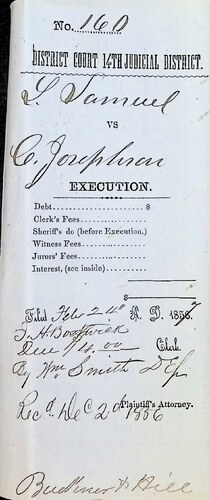 No. 160
DISTRICT COURT 14TH JUDICIAL DISTRICT.
L. Samuel
VS
C. Josephson
EXECUTION.
Debt $
Clerk's Fees
Sheriff's do (before Execution.)
Witness Fees
Jurors' Fees
Interest, (see inside)
$
Filed Feb 2d A. D. 1857
J. H. Bostwick
Due $4.00 Clerk.
By Wm Smith Dep
Plaintiff's Attorney.
Recd Decr 2d 1856
Buckner & Hill